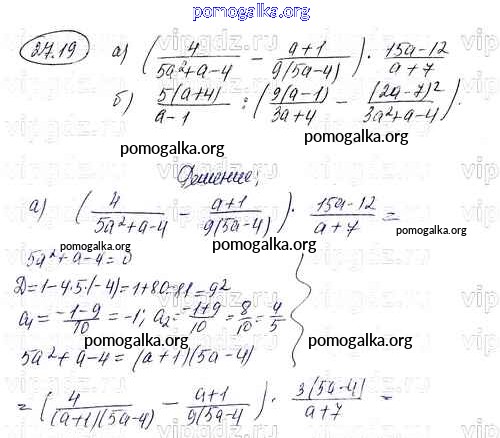 pomogalka.org
27.19 а) (4/(5a²+a-4) - (a+1)/(9(5a-4))) · (15a-12)/(a+7)
б) 5(a+4)/(a-1) : (9(a-1)/(3a+4) - (2a-7)²/(3a²+a-4)).
pomogalka.org pomogalka.org
Решение:
а) (4/(5a²+a-4) - (a+1)/(9(5a-4))) · (15a-12)/(a+7) =
pomogalka.org
5a²+a-4=0
pomogalka.org
D=1-4·5·(-4)=1+80=81=9²
a₁=(-1-9)/10=-1; a₂=(-1+9)/10=8/10=4/5
pomogalka.org pomogalka.org
5a²+a-4=(a+1)(5a-4)
=(4/((a+1)(5a-4)) - (a+1)/(9(5a-4))) · 3(5a-4)/(a+7) =
pomogalka.org